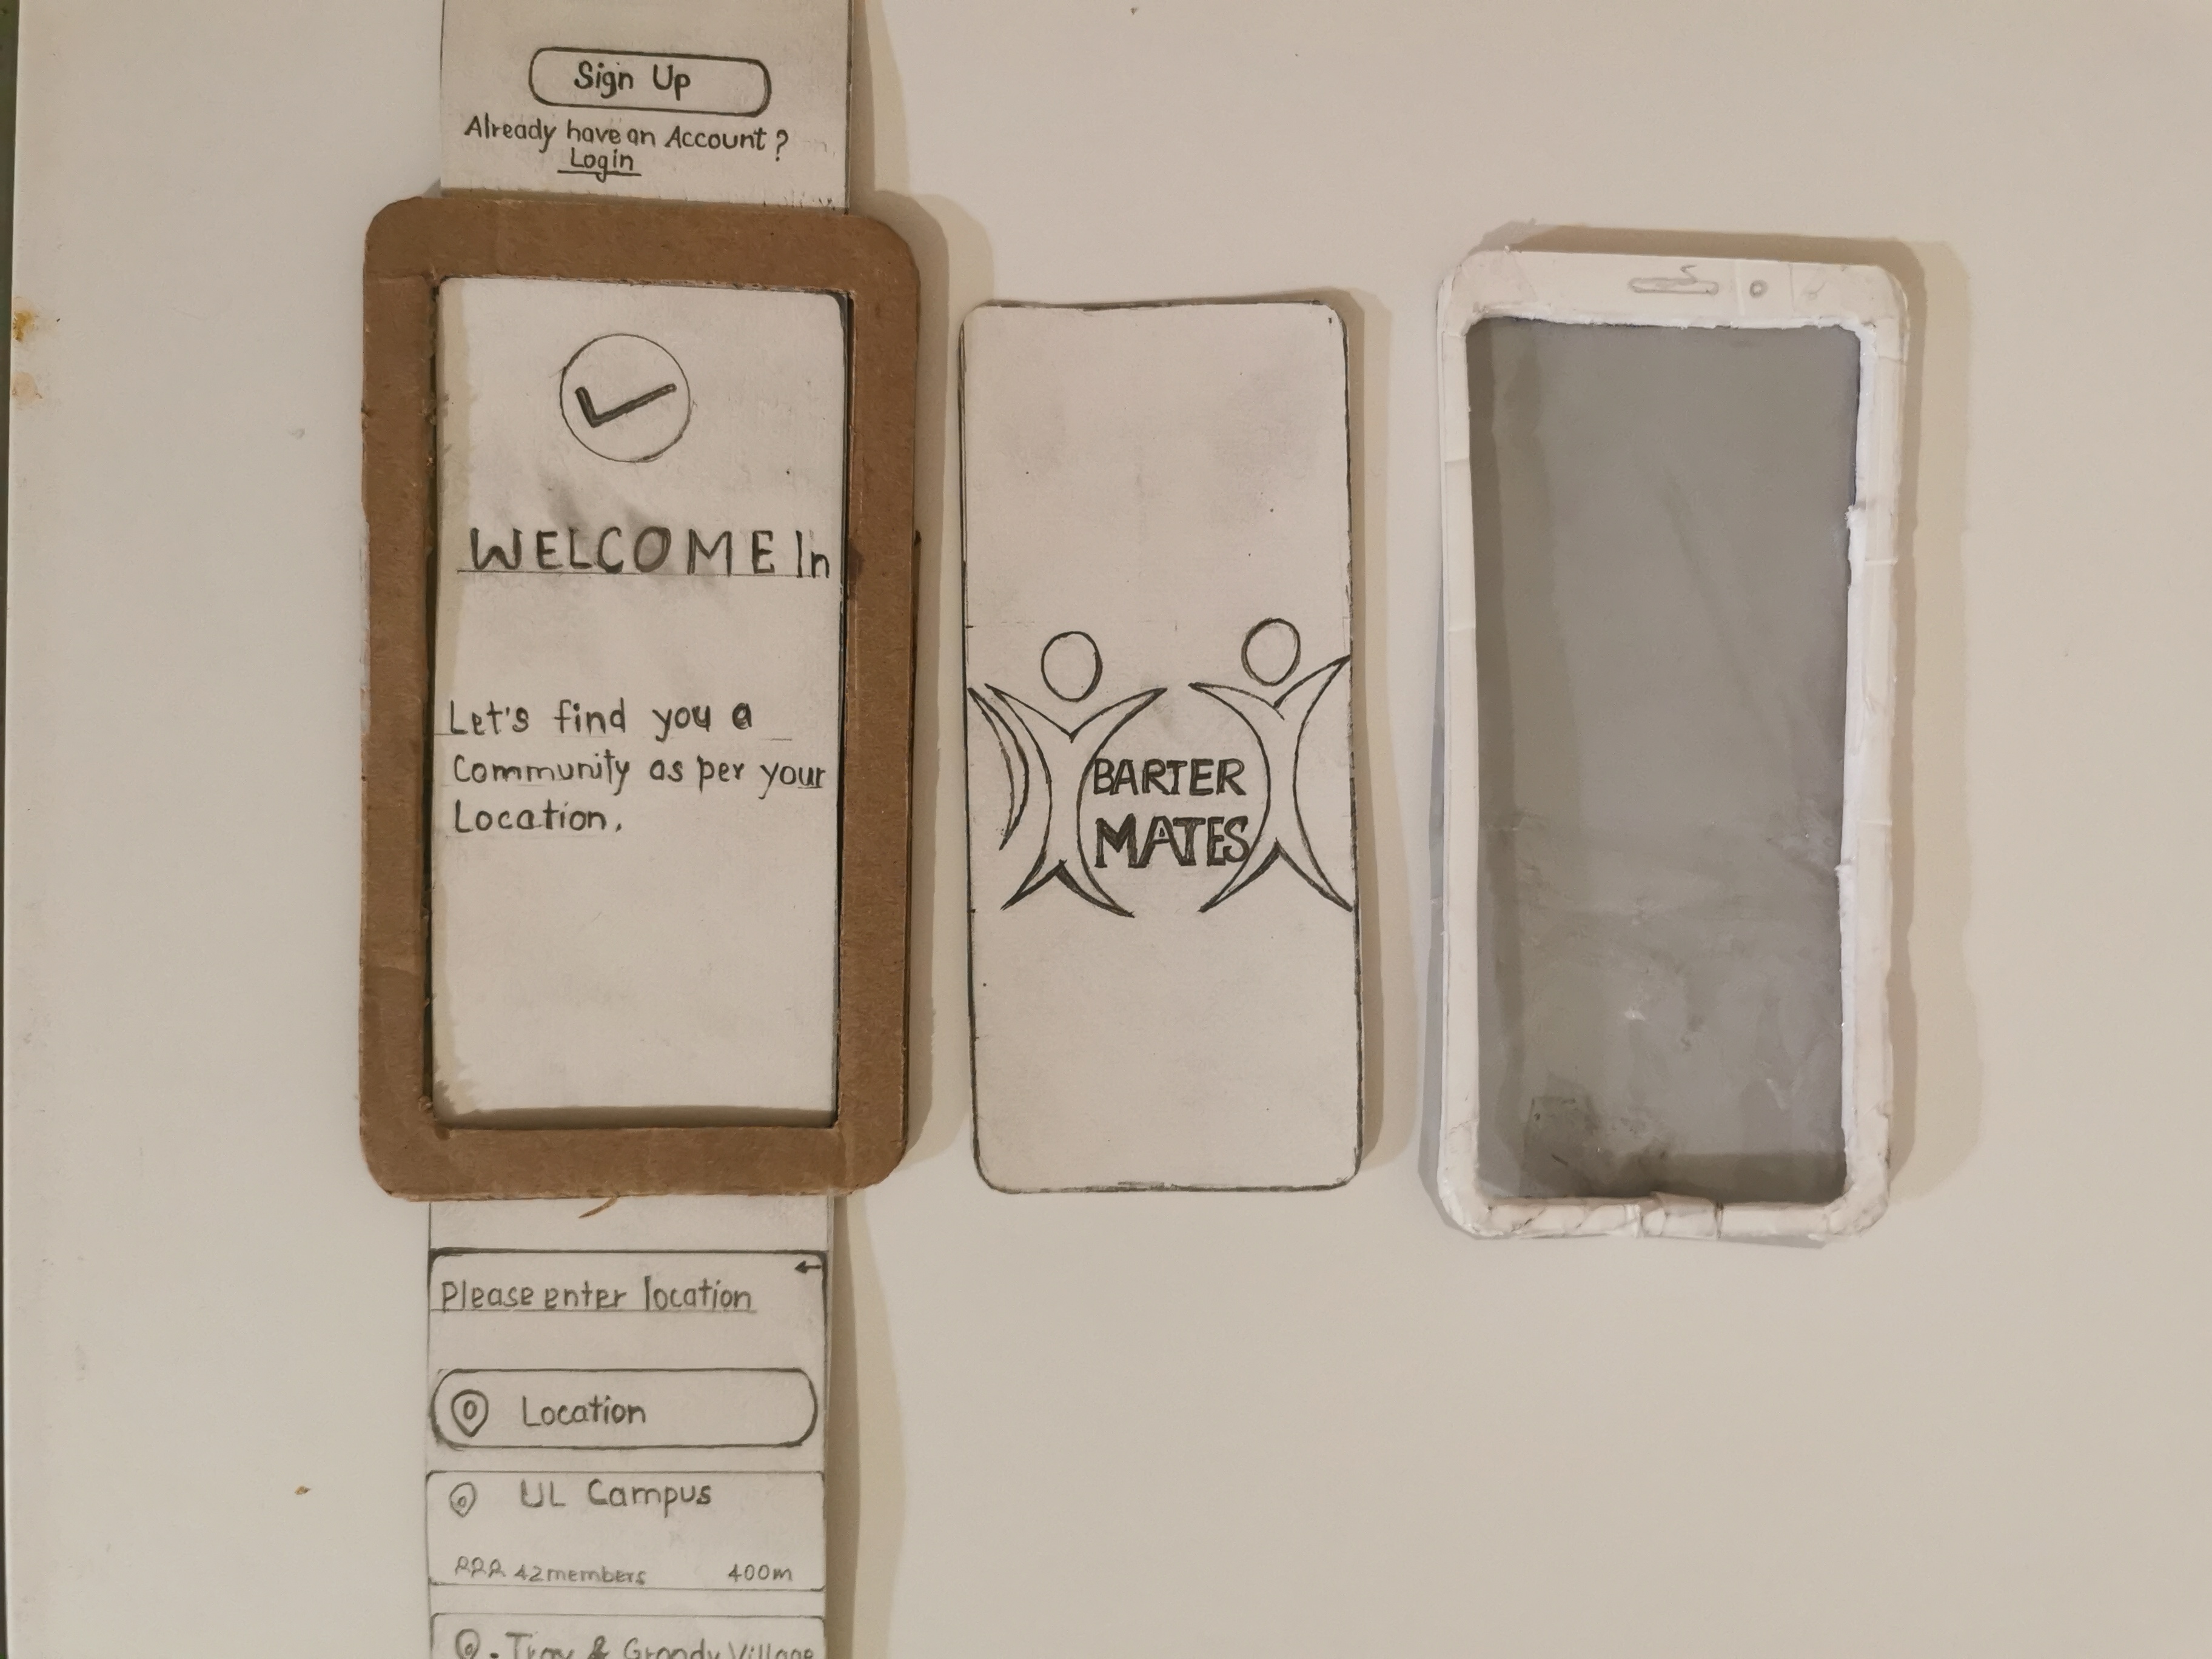 Sign Up
Already have an Account?
Login
WELCOME In
Let's find you a
Community as per your
Location.
Please enter location
Location
UL Campus
42 members 400m
Troy & Groody Village
BARTER
MATES